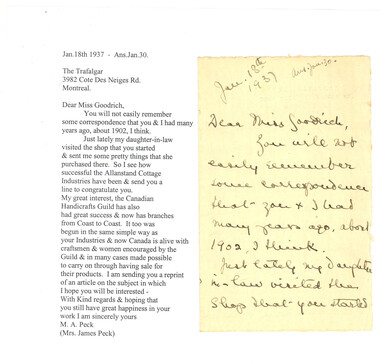 Jan.18th 1937 - Ans.Jan.30.
The Trafalgar
3982 Cote Des Neiges Rd.
Montreal.
Dear Miss Goodrich,
You will not easily remember
some correspondence that you & I had many
years ago, about 1902, I think.
Just lately my daughter-in-law
visited the shop that you started
& sent me some pretty things that she
purchased there. So I see how
successful the Allanstand Cottage
Industries have been & send you a
line to congratulate you.
My great interest, the Canadian
Handicrafts Guild has also
had great success & now has branches
from Coast to Coast. It too was
begun in the same simple way as
your Industries & now Canada is alive with
craftsmen & women encouraged by the
Guild & in many cases made possible
to carry on through having sale for
their products. I am sending you a reprint
of an article on the subject in which
I hope you will be interested -
With Kind regards & hoping that
you still have great happiness in your
work I am sincerely yours
M. A. Peck
(Mrs. James Peck)
Jan. 18th
1937
Ans.Jan.30.
Dear Miss Goodrich,
You will not
easily remember
some correspondence
that you & I had
many years ago, about
1902, I think.
Just lately my Daughter
in-law visited the
Shop that you started